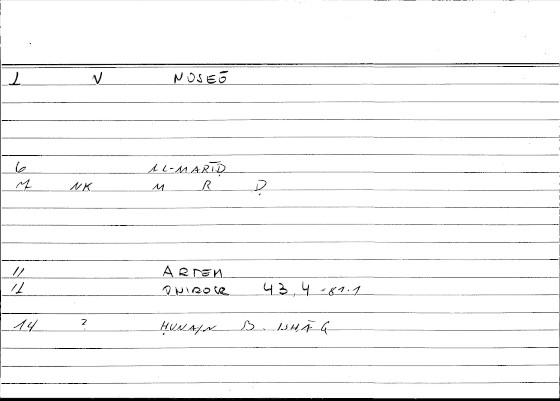 1 V NOSEŌ
6 AL-MARĪḌ
M NK M R Ḍ
11 ARTEM
12 ONIROCR 43,4-81.1
14 ? ḤUNAJN B. ISḤĀQ